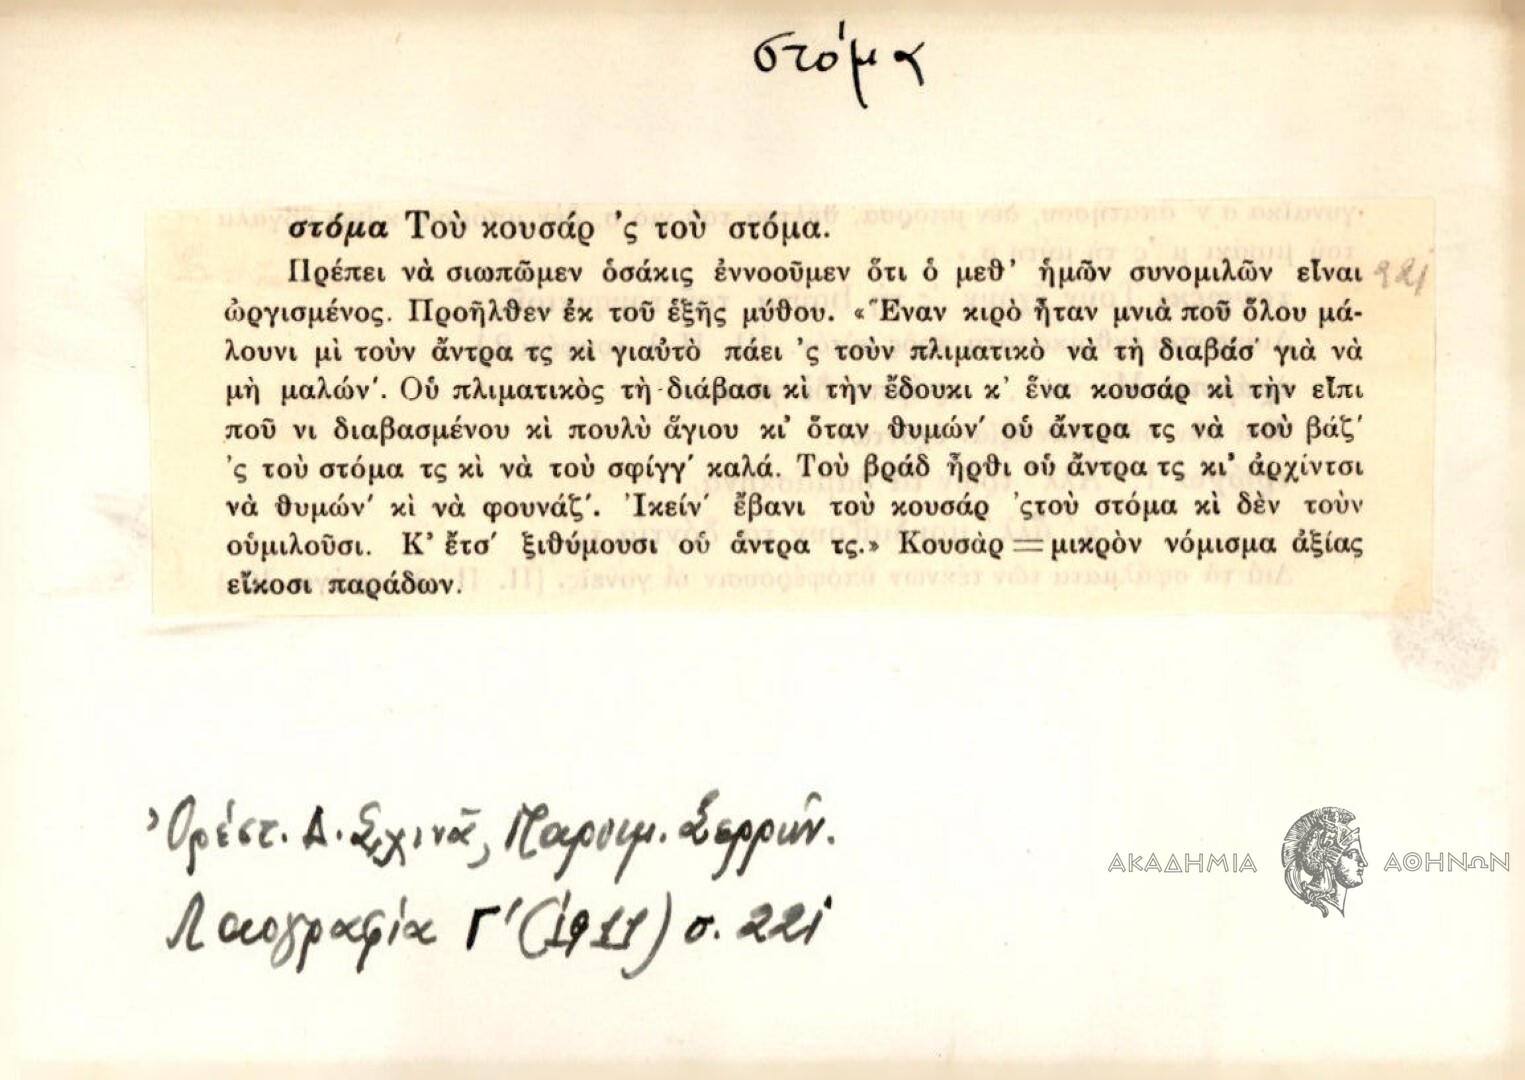 στόμα
στόμα Τοὺ κουσάρ 'ς τοὺ στόμα.
Πρέπει νὰ σιωπῶμεν ὁσάκις ἐννοοῦμεν ὅτι ὁ μεθ' ἡμῶν συνομιλῶν εἶναι 221
ὠργισμένος. Προῆλθεν ἐκ τοῦ ἑξῆς μύθου. «Ἕναν κιρὸ ἦταν μνιὰ ποῦ ὅλου μά-
λουνι μὶ τοὺν ἄντρα τς κὶ γιαὐτὸ πάει 'ς τοὺν πλιματικὸ νὰ τὴ διαβάσ' γιὰ νὰ
μὴ μαλών'. Οὑ πλιματικὸς τὴ διάβασι κὶ τὴν ἔδουκι κ' ἕνα κουσάρ κὶ τὴν εἶπι
ποῦ νι διαβασμένου κὶ πουλὺ ἅγιου κι' ὅταν θυμών' οὑ ἄντρα τς νὰ τοὺ βάζ'
'ς τοὺ στόμα τς κὶ νὰ τοὺ σφίγγ' καλά. Τοὺ βράδ ἦρθι οὑ ἄντρα τς κι' ἀρχίντσι
νὰ θυμών' κὶ νὰ φουνάζ'. Ἰκείν' ἔβανι τοὺ κουσάρ 'ςτοὺ στόμα κὶ δὲν τοὺν
οὑμιλοῦσι. Κ' ἔτσ' ξιθύμουσι οὑ ἄντρα τς.» Κουσὰρ = μικρὸν νόμισμα ἀξίας
εἴκοσι παράδων.
Ὀρέστ. Δ. Σχινᾶ, Παροιμ. Σερρῶν.
Λαογραφία Γ' (1911) σ. 221
ΑΚΑΔΗΜΙΑ ΑΘΗΝΩΝ